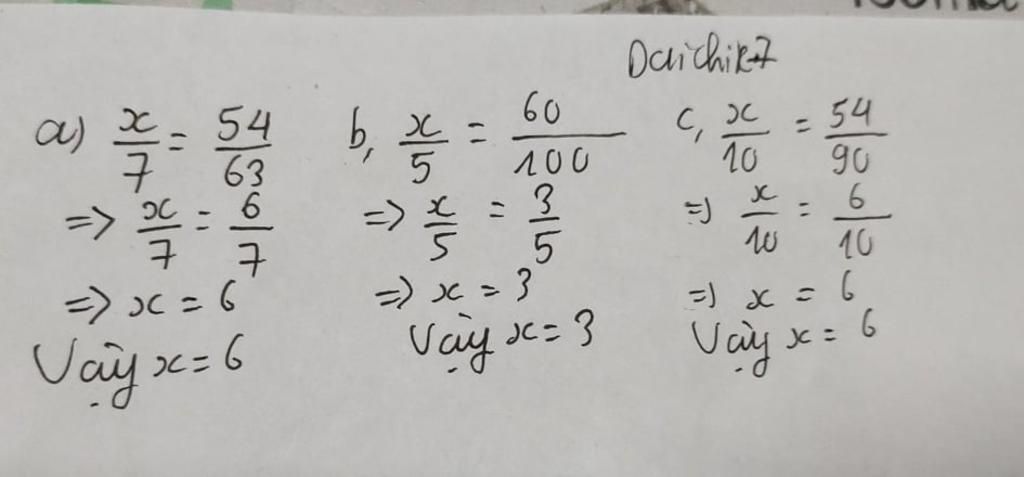 Daichik7
a) x/7 = 54/63
=> x/7 = 6/7
=> x = 6
Vậy x = 6
b, x/5 = 60/100
=> x/5 = 3/5
=> x = 3
Vậy x = 3
c, x/10 = 54/90
=> x/10 = 6/10
=> x = 6
Vậy x = 6